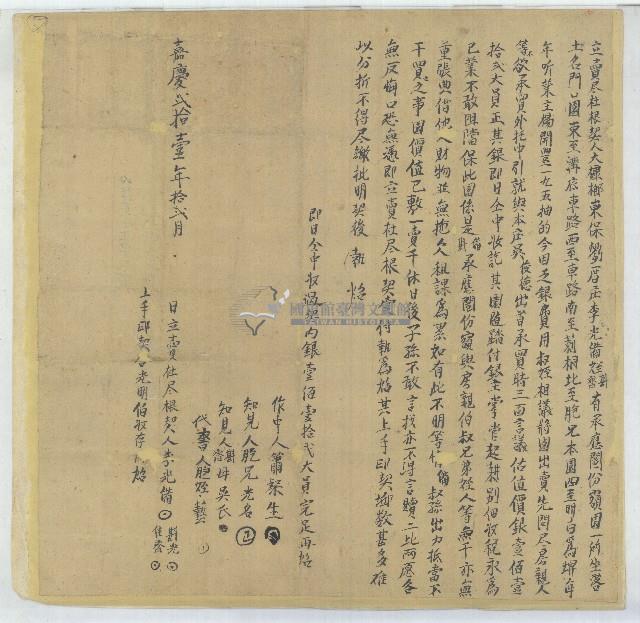 立賣尽杜根契人大槺榔東保崩山厝庄李光備姪有承應鬮份額園一所坐落
土名門口園東至溝底車路西至車路南至莿桐北至胞兄本園四至明白為界年
年听業主楊開豐一九五抽的今因乏銀費用叔姪相議將園出賣先問尽房親人
等不欲承買外托中引就與本庄吳俊德出首承買時三面言議估值價銀壹佰壹
拾弍大員正其銀即日仝中收訖其園隨踏付銀主掌管起耕別佃收稅永為
己業不敢阻擋保此園係是備承應鬮份額與房親伯叔兄弟姪人等無干亦無
重張典借他人財物並無拖欠人租課為碍如有此不明等情備叔孫出力抵當不
干買主之事因價值已敷一賣千休日後子孫不敢言找亦不得言贖二比兩愿各
無反悔口恐無憑即立賣杜尽根契壹付執為炤其上手印契塭數甚多难
以分拆不得尽繳批明契後 執炤
即日仝中收過契內銀壹佰壹拾弍大員完足再炤
作中人蕭琴生
知見人胞兄光名
知見人母吳氏
代書人胞姪藝
嘉慶弍拾壹年拾弍月 日立賣杜尽根契人李光備
上手印契合光明伯收存 炤
國史館臺灣文獻館
TAIWAN HISTORICA